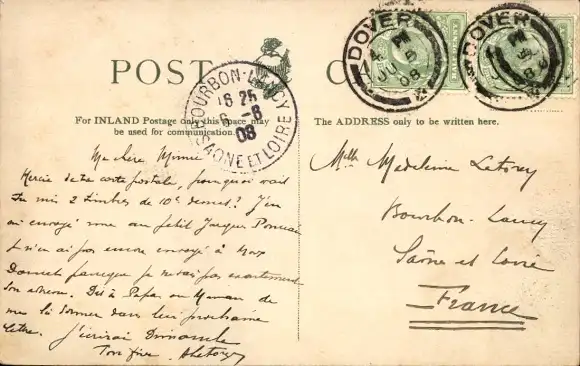 POST C
DOVER
PM
JU 5
08
DOVER
BOURBON-LANCY
18 25
6 -6
08
SAONE ET LOIRE
For INLAND Postage only this space may
be used for communication.
The ADDRESS only to be written here.
Ma chère Mimie
Merci de ta carte postale, pourquoi avait
tu mis 2 timbres de 10c dessus? J'en
ai envoyé une au petit Jacques
je n'en ai pas encore envoyé à Max
parceque je ne sais pas exactement
son adresse. Dis à Papa ou Maman de
me la donner dans leur prochaine
lettre. J'écrirai Dimanche
Ton frère
Mlle Madeleine
Bourbon-Lancy
Saône et Loire
France